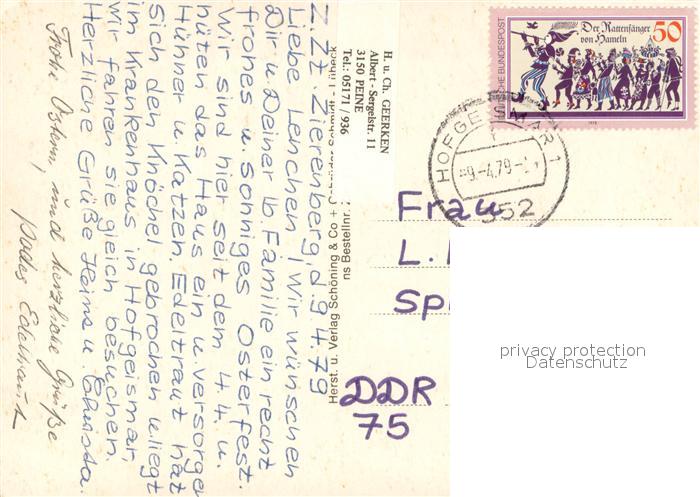 Z. Zt. Zierenberg, d. 9.4.79
Liebe Lenchen! Wir wünschen
Dir u. Deiner lb. Familie ein recht
frohes u. sonniges Osterfest.
Wir sind hier seit dem 4.4. u.
hüten das Haus ein u. versorgen
Hühner u. Katzen, Edeltraut hat
sich den Knöchel gebrochen u. liegt
im Krankenhaus in Hofgeismar,
wir fahren sie gleich besuchen.
Herzliche Grüße Heinz u. Christa.
Frohe Ostern, und herzliche Grüße
H. u. Ch. GEERKEN
Albert-Sergelstr. 11
3150 PEINE
Tel.: 05171 / 936
Herst. u. Verlag Schöning & Co +
ns Bestellnr.
Der Rattenfänger
von Hameln
50
DEUTSCHE BUNDESPOST
1978
HOFGEISMAR 1
-9.-4.79-
352
Frau
L.
Sp
DDR
75
privacy protection
Datenschutz